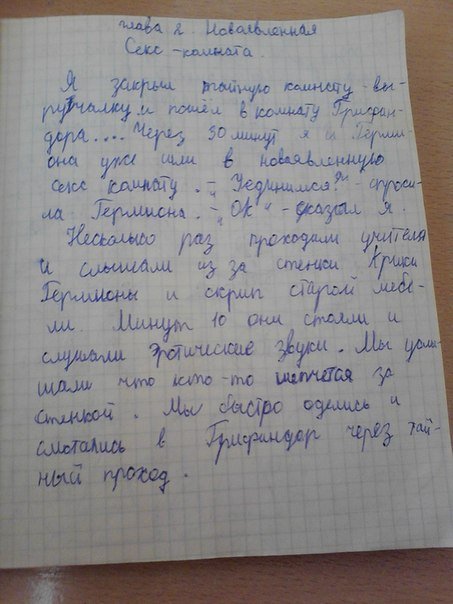 глава 2. Новаявленная
Секс-комната.
Я закрыл тайную комнату-вы-
ручалку и пошёл в комнату Грифан-
дора.... Через 30 минут я и Герми-
она уже шли в новаявленную
секс комнату. - "Уединимся?" - спроси-
ла Гермиона. - "ОК" - сказал я.
Несколько раз проходили учителя
и слышали из за стенки Крики
Гермионы и скрип старой мебе-
ли. Минут 10 они стояли и
слушали эротические звуки. Мы услы-
шали что кто-то шепчется за
стенкой. Мы быстро оделись и
смотались в Грифиндор через тай-
ный проход.